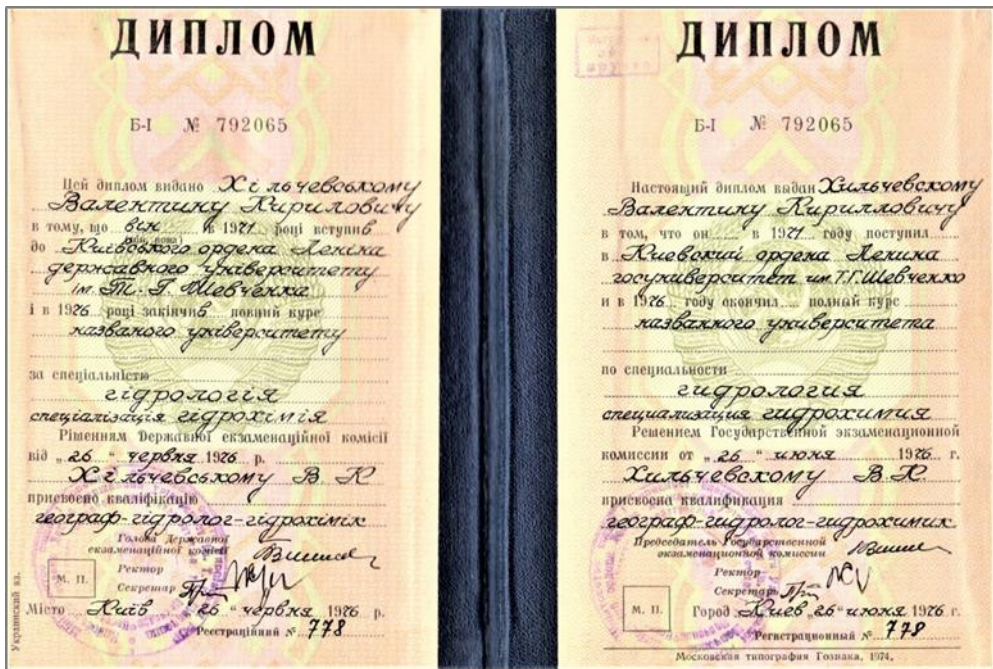 ДИПЛОМ
Б-І № 792065
Цей диплом видано Хільчевському
Валентину Кириловичу
в тому, що він в 1971 році вступив
до Київського ордена Леніна
державного університету
ім. Т. Г. Шевченка
і в 1976 році закінчив повний курс
названого університету
за спеціальністю
гідрологія
спеціалізація гідрохімія
Рішенням Державної екзаменаційної комісії
від „26“ червня 1976 р.
Хільчевському В. К
присвоєно кваліфікацію
географ-гідролог-гідрохімік
Голова Державної
екзаменаційної комісії
Ректор
Секретар
М. П.
Місто Київ „26“ червня 1976 р.
Реєстраційний № 778
Украинский яз.
ДИПЛОМ
Б-I № 792065
Настоящий диплом выдан Хильчевскому
Валентину Кирилловичу
в том, что он в 1971 году поступил
в Киевский ордена Ленина
госуниверситет им. Т.Г. Шевченко
и в 1976 году окончил полный курс
названного университета
по специальности
гидрология
специализация гидрохимия
Решением Государственной экзаменационной
комиссии от „26“ июня 1976 г.
Хильчевскому В. К.
присвоена квалификация
географ-гидролог-гидрохимик
Председатель Государственной
экзаменационной комиссии
Ректор
Секретарь
М. П.
Город Киев „26“ июня 1976 г.
Регистрационный № 778
Московская типография Гознака, 1974.